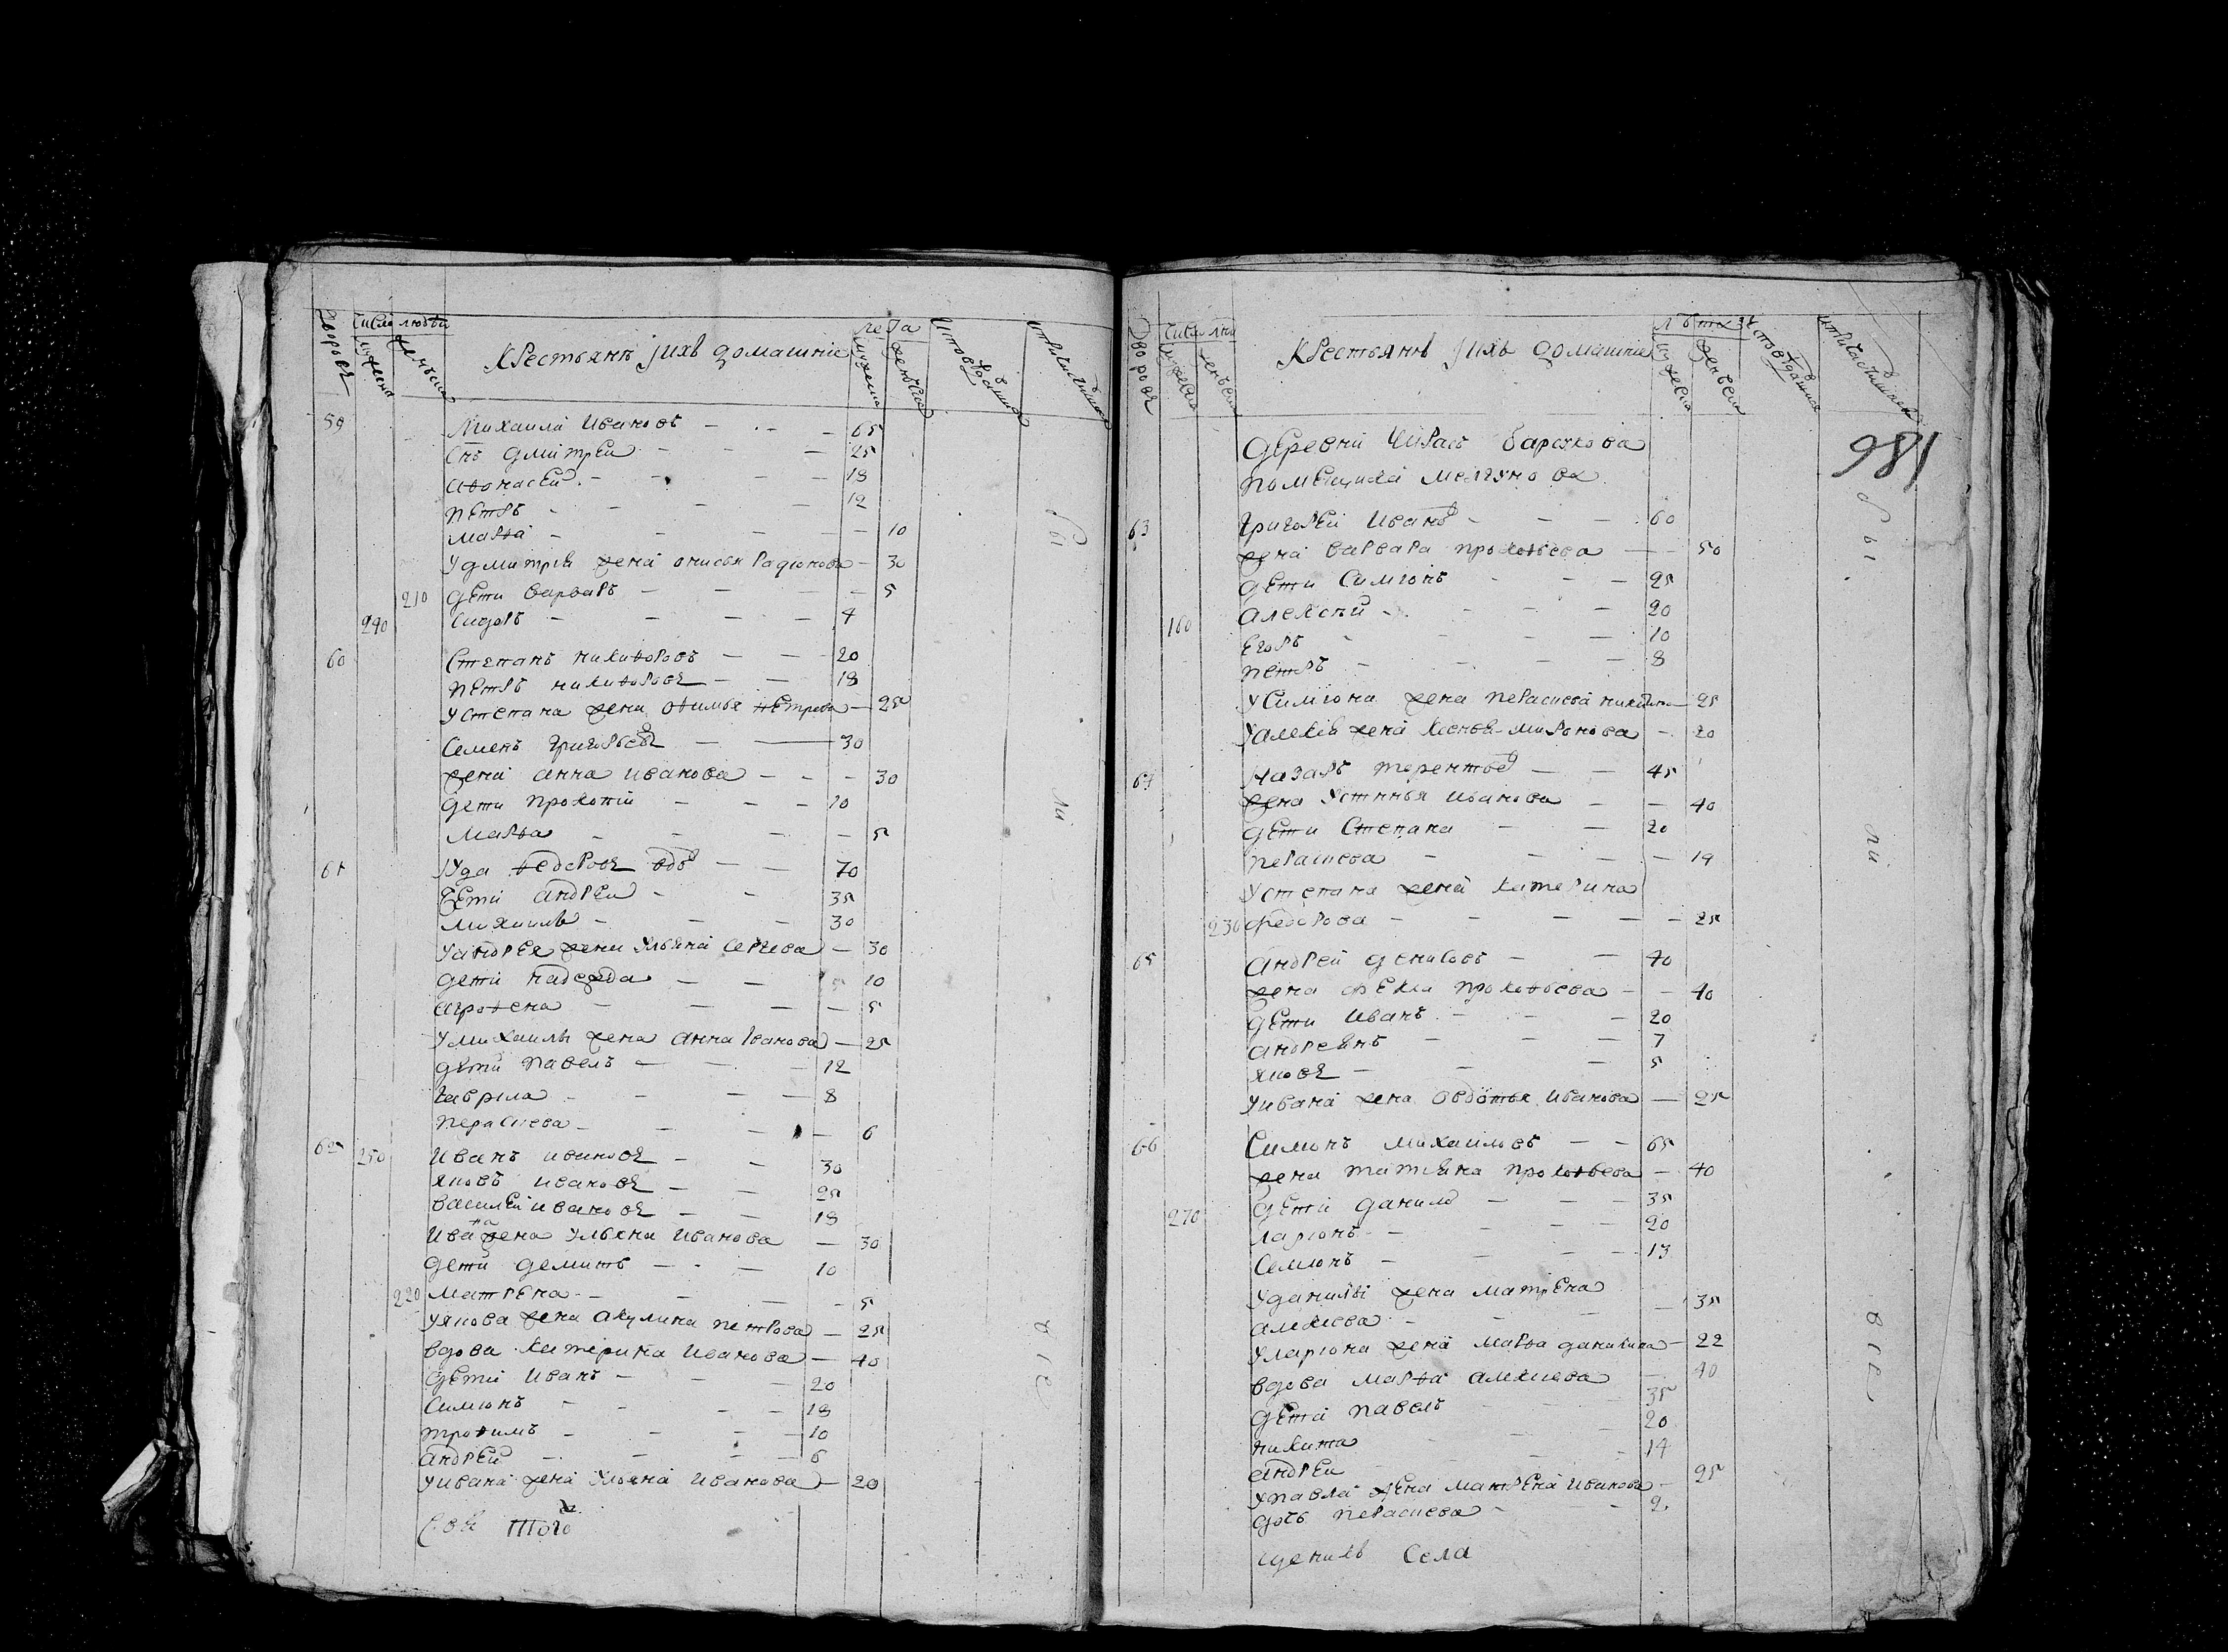 дворовъ числа людеи лета
мужеска женъска мужска женъска
Крестьянъ ихъ домашние
59 Михаила Ивановъ 65
снъ Дмитрей 25
Афонасей 18
Петръ 12
Марфа 10
У Дмитрiя жена Онисья Радионова 30
210 дети Варваръ 5
240 Сидоръ 4
60 Степанъ Никифоровъ 20
Петръ Никифоровъ 18
У Степана жена Офимья Петрова 25
Семенъ Григорьевъ 30
жена Анна Иванова 30
дети Прокопiй 10
Марфа 5
61 Иуда Федоровъ вдвъ 70
дети Андреи 35
Михаила 30
У Андрея жена Ульяна Сергева 30
дети Надежда 10
Агрофена 5
У Михаилы жена Анна Иванова 25
дети Павелъ 12
Гаврила 8
Парасиева 6
62 250 Иванъ Ивановъ 30
Яковъ Ивановъ 25
Василей Ивановъ 18
Ивана жена Ульяна Иванова 30
дети Демитъ 10
220 Матрена 5
У Якова жена Акулина Петрова 25
вдова Катерина Иванова 40
дети Иванъ 20
Симионъ 18
Трофимъ 10
Андрей 6
У Ивана жена Ульяна Иванова 20
бы
ли
все
дворовъ числа лю лѣта
мужеска женъска мужеска женъска
Крестьянъ ихъ домашние
186
деревни Барсукова
помещика Мелгунова
63 Григорей Иванъ 60
жена Варвара Прокофьева 50
дети Симионъ 25
160 Алексѣй 20
Егоръ 10
Петръ 8
У Симиона жена Парасиева Никитина 25
У Алексѣя жена Ксенья Миронова 20
64 Назаръ Терентьев 45
жена Устинья Иванова 40
дети Степана 20
Парасиева 19
У Степана жена Катерина
230 Федорова 25
65 Андрей Денисовъ 40
жена Фекла Прокофьева 40
дети Иванъ 20
Андреянъ 7
Яковъ 5
У Ивана жена Овдотья Иванова 25
66 Симонъ Михаиловъ 65
жена Татьяна Прокофьева 40
дети Данило 35
270 Ларионъ 20
Семионъ 13
У Данилы жена Матрена
Алексиева 35
У Лариона жена Марфа Данилова 22
вдова Марфа Алексиева 40
дети Павелъ 35
Никита 20
Андреи 14
У Павла жена Матрена Иванова 25
дочь Парасиева 2
села
бы
ли
все